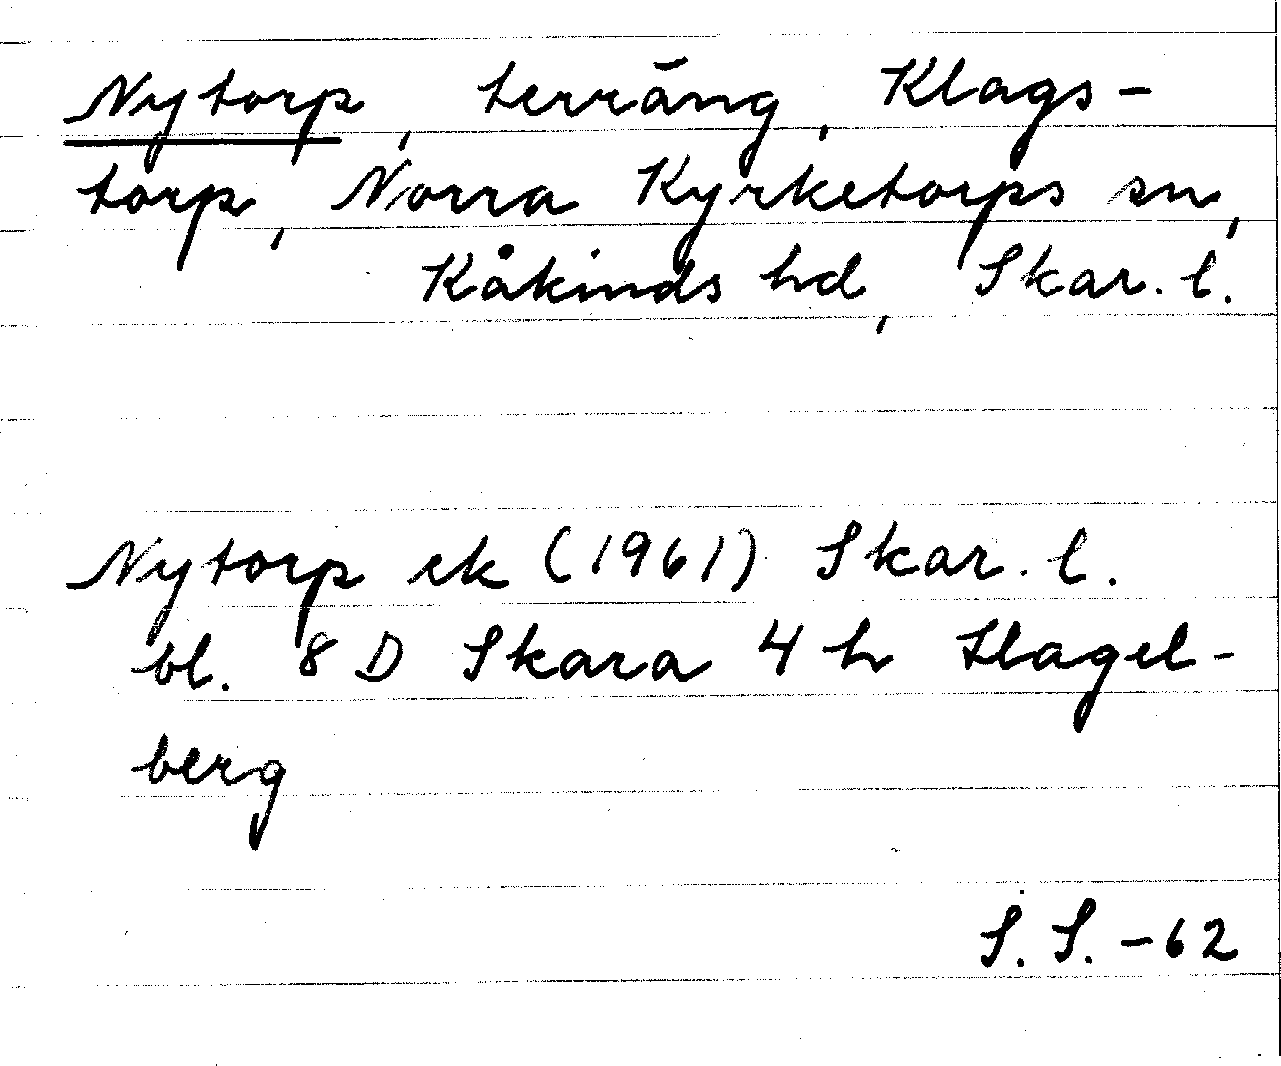 Nytorp, terräng, Klags-
torp, Norra Kyrketorps sn,
Kåkinds hd, Skar. l.
Nytorp ek (1961) Skar. l.
bl. 8 D Skara 4 h Hagel-
berg
S. S. -62